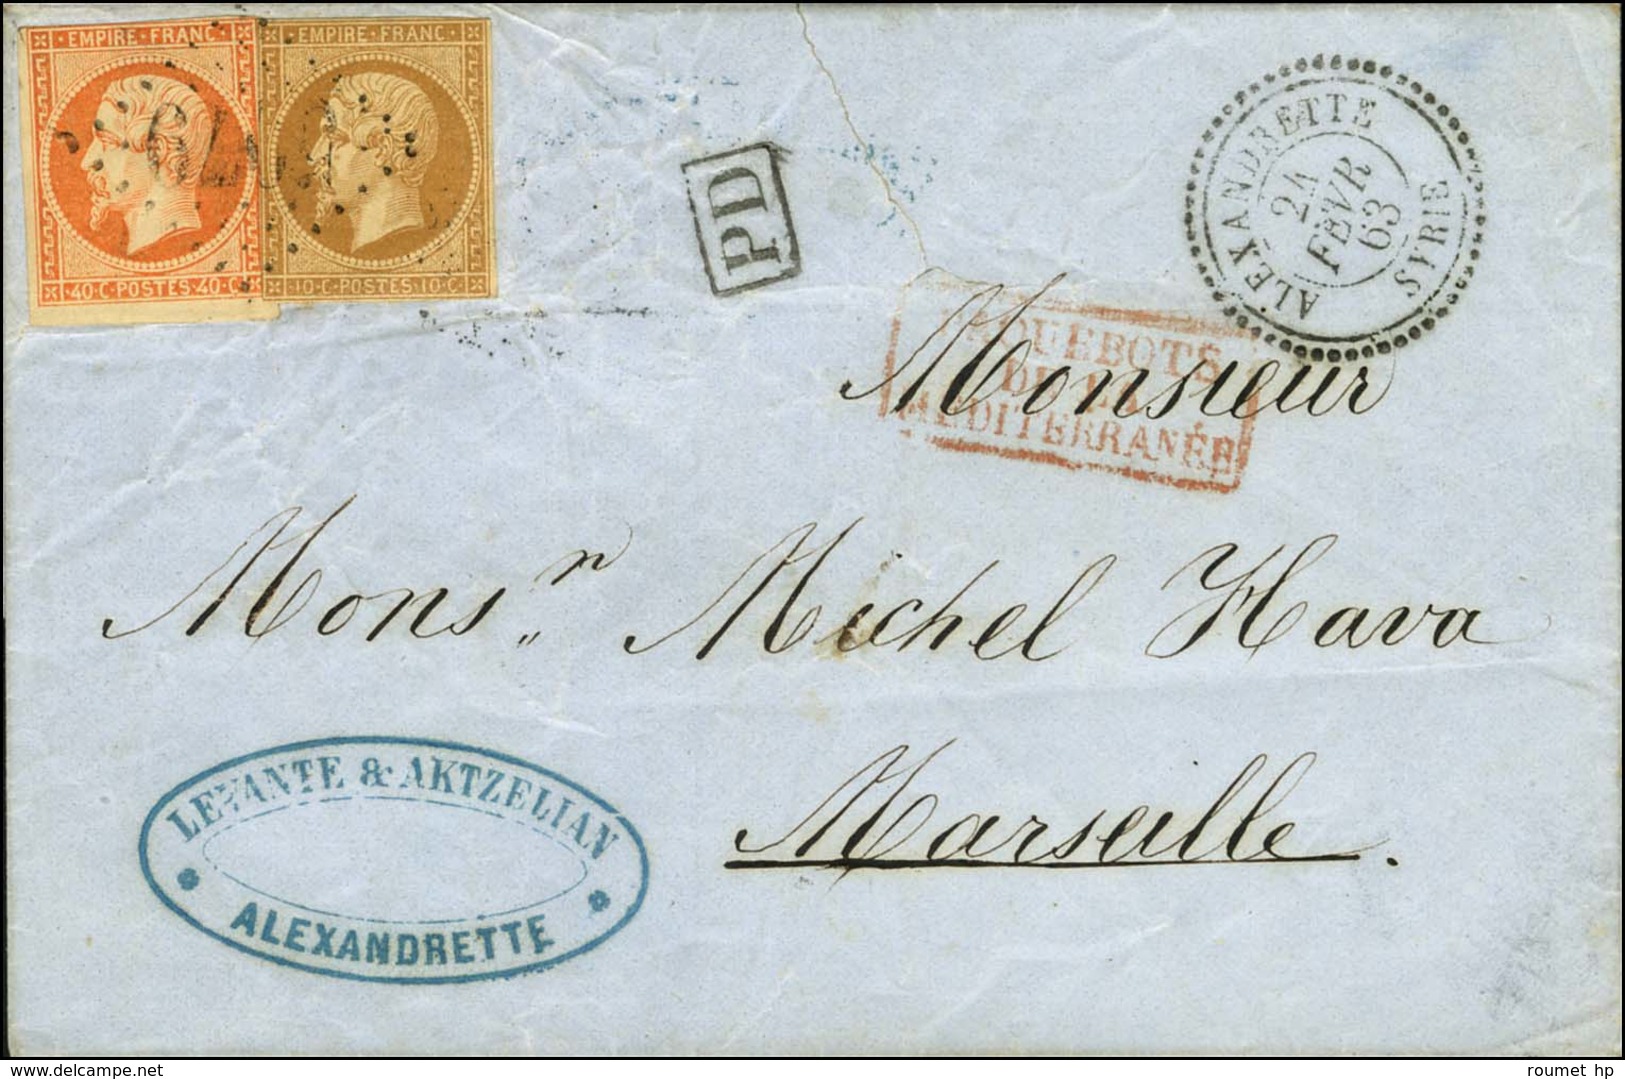 EMPIRE FRANC
40·C·POSTES·40·C
EMPIRE·FRANC
10·C·POSTES·10·C
PD
ALEXANDRETTE
24
FÉVR
63
SYRIE
PAQUEBOTS
DE LA
MÉDITERRANÉE
Monsieur
Monsr Michel Hava
Marseille.
LEVANTE & AKTZELIAN
ALEXANDRETTE
www.delcampe.net
roumet hp